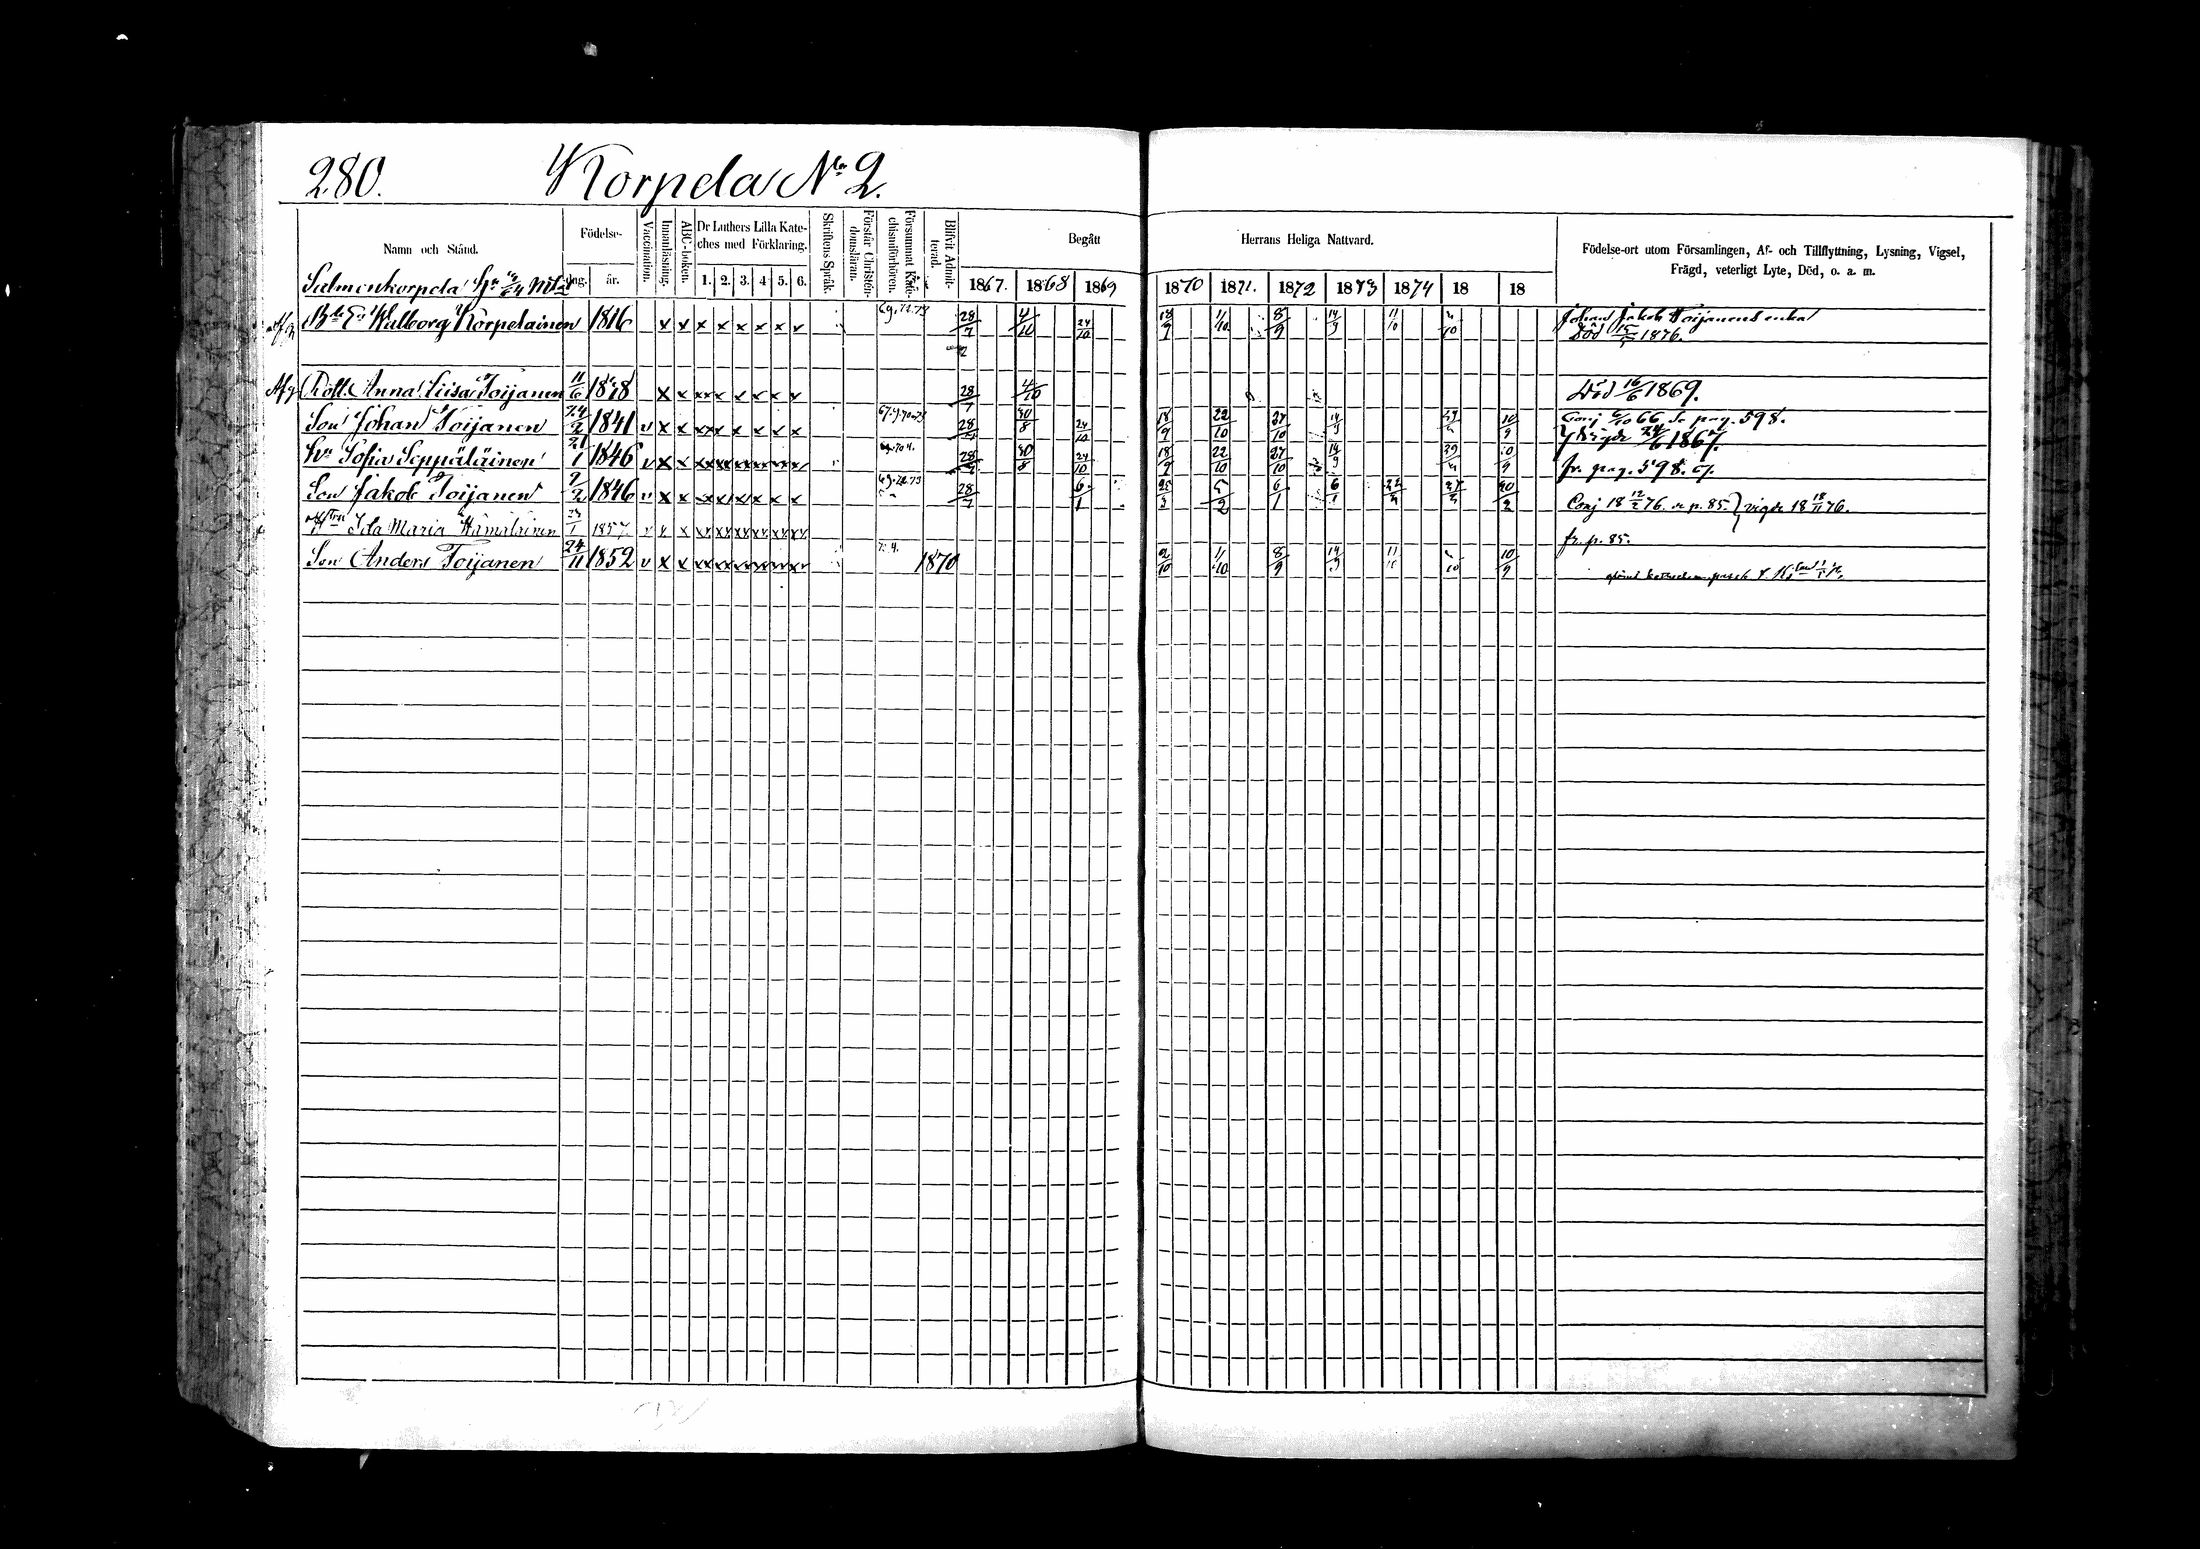 280. Korpela No 2.
Namn och Stånd.
Födelse-
dag. år.
Vaccination.
Innanläsning.
ABC-boken.
Dr Luthers Lilla Kate-
ches med Förklaring.
1. 2. 3. 4. 5. 6.
Skriftens Språk.
Förstår Christen-
domsläran.
Försummat Kate-
chismiförhören.
Blifvit Admit-
terad.
Begått Herrans Heliga Nattvard.
1867. 1868 1869 1870 1871. 1872 1873 1874 18 18
Födelse-ort utom Församlingen, Af- och Tillflyttning, Lysning, Vigsel,
Frägd, veterligt Lyte, Död, o. a. m.
Salmenkorpela
Walborg Korpelainen 1816 x x x x x x x x 69.72.73 28/7 4/10 24/10 18/9 1/10 8/9 14/9 11/10 Johan Jakob Toijanens enka
Död 1876.
Afg Dott. Anna Liisa Toijanen 11/6 x x xx x x x x x 28/7 4/10 Död 16/6 1869.
Son Johan Toijanen 24/2 1841 v x x xx x x x x x 28/7 30/8 24/10 18/9 22/10 27/10 14/9 29/4 10/9 Conj 66 se pag. 598.
Vigde 24/6 1867.
Hu Sofia Seppäläinen 21/1 1846 v x x xx xx xx xx xx xx 28/7 30/8 24/10 18/9 22/10 27/10 14/9 29/4 10/9 fr. pag. 598.
Son Jakob Toijanen 9/2 1846 v x x xx xx xx x x x 69.72.73 28/7 6/1 25/3 5/2 6/1 6/1 22/3 27/3 20/2 Conj 18 12/2 76. se p. 85. vigde 18 18/11 76.
Hu Ida Maria Hämäläinen 23/1 1857 v x x xx xx xx xx xx xx fr. p. 85.
Son Anders Toijanen 24/11 1852 v x x xx xx xx xx xx xx 1870 2/10 1/10 8/9 14/9 11/10 10/9